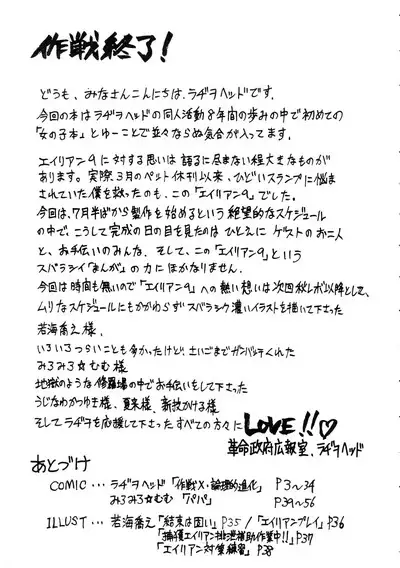 作戦終了!
どうも、みなさんこんにちは、ラヂヲヘッドです。
今回の本はラヂヲヘッドの同人活動8年間の歩みの中で初めての
「女の子本」とゆーことで並々ならぬ気合が入ってます。
エイリアン9に対する思いは語るに尽きない程大きなものが
あります。実際3月のペット休刊以来、ひどいスランプに悩ま
されていた僕を救ったのも、この「エイリアン9」でした。
今回は、7月半ばから製作を始めるという絶望的なスケジュール
の中で、こうして完成の日の目を見たのはひとえにゲストのお二人
と、お手伝いのみんな、そして、この「エイリアン9」という
スバラシイ「まんが」の力にほかなりません。
今回は時間も無いので「エイリアン9」への熱い想いは次回秋レボ以降として、
ムリなスケジュールにもかかわらずスバラシク濃いイラストを描いて下さった
若海喬え様、
いろいろつらいことも多かったけど、さいごまでガンバッテくれた
みろみろ☆むむ様、
地獄のような修羅場の中でお手伝いをして下さった
うじなわかつゆき様、夏来様、新投かける様
そしてラヂヲを応援して下さったすべての方々に LOVE!!♡
革命政府広報室、ラヂヲヘッド
あとづけ
COMIC … ラヂヲヘッド「作戦X・論理的進化」 P3〜34
みろみろ☆むむ 「パパ」 P39〜56
ILLUST … 若海喬え「結束は固い」P35 / 「エイリアンプレイ」P36
「捕獲エイリアン排泄補助作業中!!」P37
「エイリアン対策練習」P38